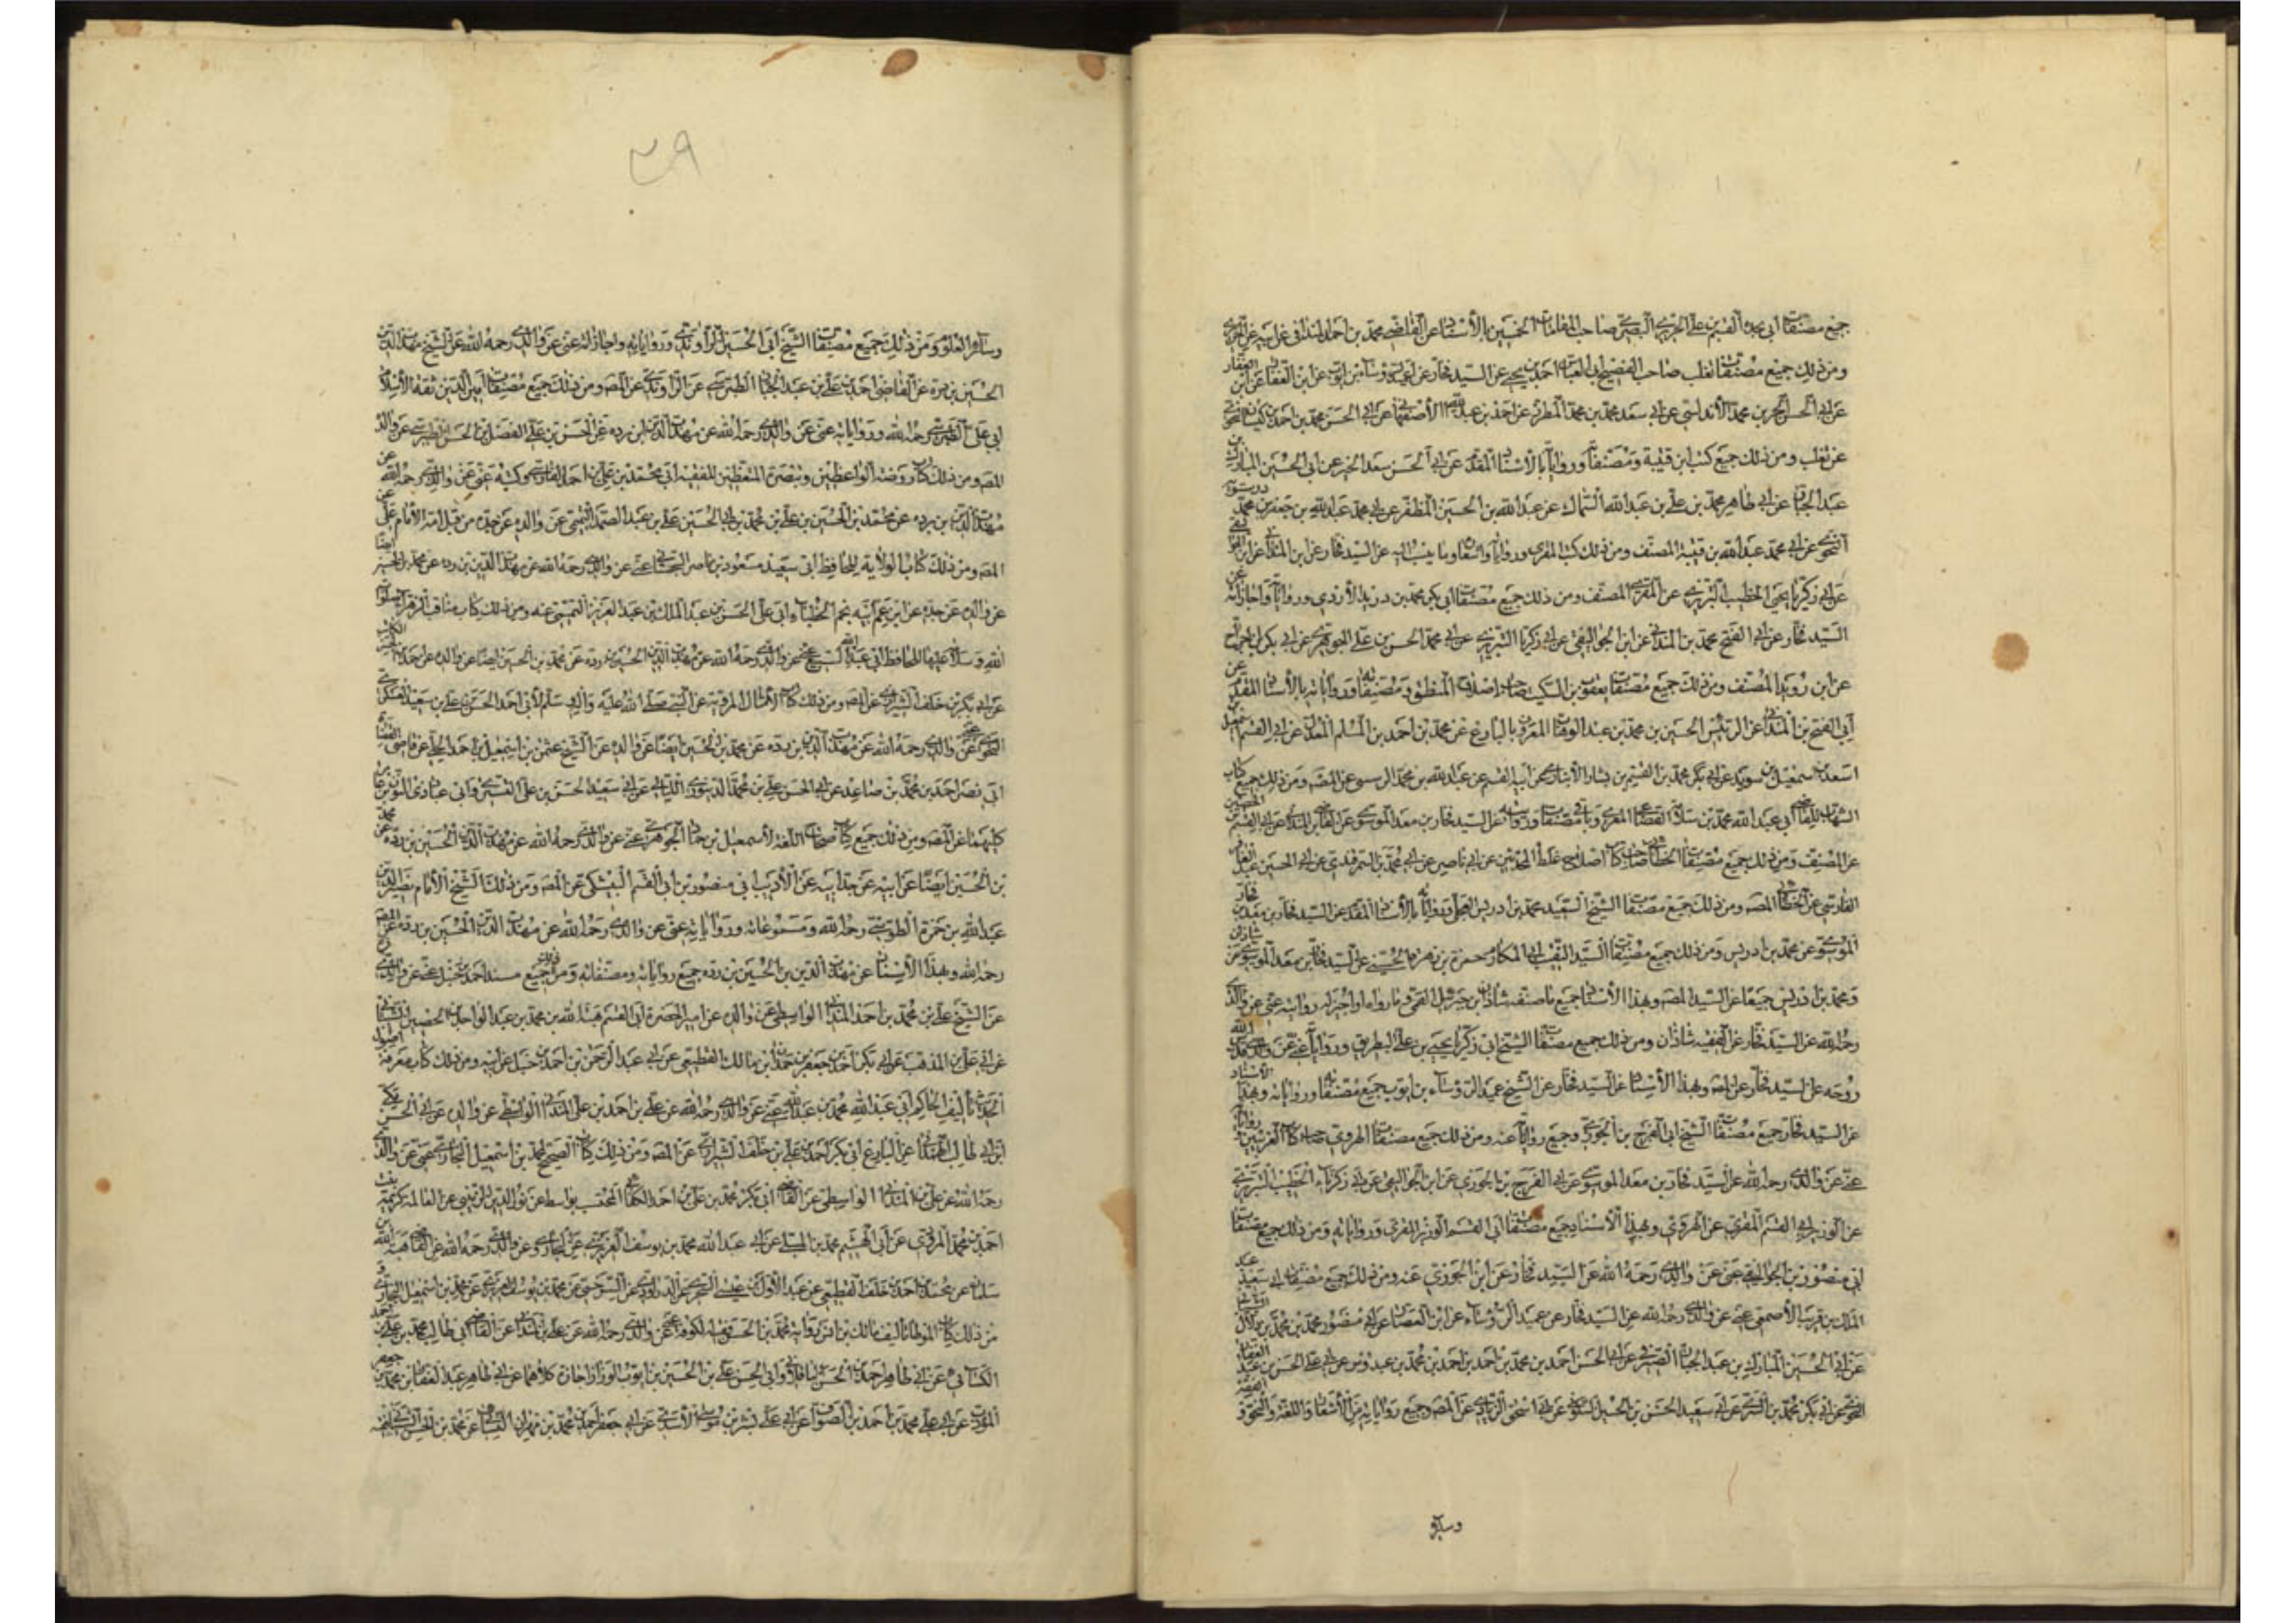 جميع مصنفات ابي محمد القسم بن علي الحريري البصري صاحب المقامات الخمسين بالأسناد عن القاضي محمد بن احمد المندائي عن الحريري
ومن ذلك جميع مصنفات ثعلب صاحب الفصيح ابي العباس احمد بن يحيى عن السيد فخار عن ابن القصار عن
عن ابي الحسن بن محمد الأندلسي عن ابي سعد محمد بن محمد المطرز عن احمد بن عبد الله الأصفهاني عن ابي الحسن محمد بن احمد بن كيسان النحوي
عن ثعلب ومن ذلك جميع كتب ابن قتيبة ومصنفاته ورواياته بالأسناد المقدم عن ابي الحسن سعد الخير عن ابي الحسين المبارك بن
عبد الجبار عن ابي طاهر محمد بن علي بن عبد الله السماك عن عبد الله بن الحسين المظفر عن ابي محمد عبد الله بن جعفر بن محمد درستويه
النحوي عن ابي محمد عبد الله بن قتيبة المصنف ومن ذلك كتب عن السيد فخار عن ابن المندائي
عن ابي زكريا يحيى الخطيب التبريزي عن المصنف ومن ذلك جميع مصنفات ابي بكر محمد بن دريد الأزدي ورواياته واجازاته عن
السيد فخار عن ابي الفتح محمد بن المندائي عن ابن الجواليقي عن ابي زكريا التبريزي عن ابي محمد الحسن بن علي الجوهري عن ابي بكر
عن ابن دريد المصنف ومن ذلك جميع مصنفات يعقوب بن السكيت صاحب اصلاح المنطق ومصنفاته ورواياته بالأسناد المقدم عن
ابي الفتح بن المندائي عن الرئيس الحسين بن محمد بن عبد الوهاب المعروف بالبارع عن محمد بن احمد بن المسلم المعدل عن ابي القسم اسمعيل
اسعد بن اسمعيل بن سويد عن ابي بكر محمد بن القسم بن بشار الأنباري عن ابيه القسم عن عبد الله بن محمد عن المصـ ومن ذلك جميع كتاب
الشهاب للقاضي ابي عبد الله محمد بن سلامة القضاعي المغربي وباقي مصنفاته ورواياته عن السيد فخار بن معد الموسوي عن القاضي ابن المندائي عن ابي القسم
عن المصنف ومن ذلك جميع مصنفات الخطابي صاحب كتاب اصلاح غلط المحدثين عن ابي ناصر عن ابي محمد بن السمرقندي عن ابي الحسين عبد الغافر
الفارسي عن الخطابي المصـ ومن ذلك جميع مصنفات الشيخ السعيد محمد بن ادريس العجلي ورواياته بالأسناد المقدم عن السيد فخار بن معد
الموسوي عن محمد بن ادريس ومن ذلك جميع مصنفات السيد النقيب ابي المكارم حمزة بن زهرة الحسيني عن السيد فخار بن معد الموسوي عن شاذان
ومحمد بن ادريس جميعا عن السيد المصـ وبهذا الأسناد جميع ما صنفه شاذان بن جبرئيل القمي وما رواه او اجيز له روايته عني عن والدي
رحمه الله عن السيد فخار عن الفقيه شاذان ومن ذلك جميع مصنفات الشيخ ابي زكريا يحيى بن علي البطريق ورواياته عني عن والدي قدس الله
روحه عن السيد فخار عن المصـ وبهذا الأسناد عن السيد فخار عن الشيخ عميد الرؤساء بن ايوب جميع مصنفاته ورواياته وبهذا الأسناد
عن السيد فخار جميع مصنفات الشيخ ابي الفرج بن الجوزي وجميع رواياته عنه ومن ذلك جميع مصنفات الهروي صاحب كتاب الغريبين
عني عن والدي رحمه الله عن السيد فخار بن معد الموسوي عن ابي الفرج بن الجوزي عن ابن الجواليقي عن ابي زكرياء الخطيب التبريزي
عن الوزير ابي القسم المغربي عن الهروي وبهذا الأسناد جميع مصنفات ابي القسم الوزير المغربي ورواياته ومن ذلك جميع مصنفات
ابي منصور بن الجواليقي عني عن والدي رحمه الله عن السيد فخار عن ابن الجوزي عنه ومن ذلك جميع مصنفات ابي سعيد عبد
الملك بن قريب الأصمعي عني عن والدي رحمه الله عن السيد فخار عن عميد الرؤساء عن ابن العصار عن ابي منصور محمد بن محمد بن
عن ابي الحسين المبارك بن عبد الجبار الصيرفي عن ابي الحسن احمد بن محمد بن احمد بن احمد بن محمد بن عبدوس عن ابي علي الحسن بن عبد الغفار
النحوي عن ابي بكر محمد بن السري عن ابي سعيد الحسن بن الحسين السكري عن ابي اسحق الزيادي عن المصـ وجميع رواياته من الأشعار واللغة والنحو
وسائر
٣٩
وسائر العلوم ومن ذلك جميع مصنفات الشيخ ابي الحسين الراوندي ورواياته واجازاته عني عن والدي رحمه الله عن الشيخ مهذب الدين
الحسين بن ردة عن القاضي احمد بن علي بن عبد الجبار الطبرسي عن الراوندي عن المصـ ومن ذلك جميع مصنفات امين الدين ثقة الأسلام
ابي علي الطبرسي رحمه الله ورواياته عني عن والدي رحمه الله عن مهذب الدين بن ردة عن الحسن بن علي الفضل بن الحسن الطبرسي عن والده
المصـ ومن ذلك كتاب روضة الواعظين وتبصرة المتعظين للفقيه ابي محمد بن علي بن احمد الفارسي وكتبه عني عن والدي رحمه الله عن
مهذب الدين بن ردة عن محمد بن الحسين بن علي بن محمد بن ابي الحسين علي بن عبد الصمد التميمي عن والده عن جده من قبل امه الأمام علي عن
المصـ ومن ذلك كتاب الولاية للحافظ ابي سعيد مسعود بن ناصر السجستاني عني عن والدي رحمه الله عن مهذب الدين بن ردة عن محمد بن الحسين ايضا
عن والده عن جده عن ابن عم ابيه نجم الخطباء ابي علي الحسن بن عبد الملك بن عبد العزيز التميمي عنه ومن ذلك كتاب مناقب الزهراء صلوات
الله وسلامه عليها للحافظ ابي عبد الله عني عن والدي رحمه الله عن مهذب الدين الحسين بن ردة عن محمد بن الحسين ايضا عن والده عن جده
عن ابي بكر بن خلف الشيرازي عن المصـ ومن ذلك كتاب الأمثال المروية عن النبي صلى الله عليه وآله وسلم لأبي احمد الحسن بن علي بن سعيد العسكري
النحوي عني عن والدي رحمه الله عن مهذب الدين بن ردة عن محمد بن الحسين ايضا عن والده عن الشيخ عثمن بن اسمعيل بن احمد عن قاضي القضاة
ابي نصر احمد بن محمد بن صاعد عن ابي الحسن علي بن محمد الدينوري عن ابي سعيد الحسن بن علي
كليهما عن المصـ ومن ذلك جميع كتاب صحاح اللغة لأسمعيل بن حماد الجوهري عني عن والدي رحمه الله عن مهذب الدين الحسين بن ردة عن محمد
بن الحسين ايضا عن ابيه عن جد ابيه عن الأديب ابي منصور بن ابي القسم البيشكي عن المصـ ومن ذلك الشيخ الأمام نصير الدين
عبد الله بن حمزة الطوسي رحمه الله ومسموعاته ورواياته عني عن والدي رحمه الله عن مهذب الدين الحسين بن ردة عن المصـ
رحمه الله وبهذا الأسناد عن مهذب الدين بن الحسين بن ردة جميع رواياته ومصنفاته ومن ذلك جميع مسند احمد بن حنبل عني عن والدي
عن الشيخ علي بن محمد بن احمد المندائي الواسطي عن والده عن ابي القسم هبة الله بن محمد بن عبد الواحد بن الحصين الشيباني
عن ابي علي بن المذهب عن ابي بكر احمد بن جعفر بن حمدان بن مالك القطيعي عن ابي عبد الرحمن بن احمد بن حنبل عن ابيه ومن ذلك كتاب معرفة اصول
الحديث تأليف الحاكم ابي عبد الله محمد بن عبد الله عني عن والدي رحمه الله عن علي بن احمد بن علي المندائي الواسطي عن والده عن ابي الحسن
ابن ابي طالب عن البارع ابي بكر احمد بن علي بن خلف الشيرازي عن المصـ ومن ذلك كتاب الصحيح لمحمد بن اسمعيل البخاري عني عن والدي
رحمه الله عن علي بن المندائي الواسطي عن القاضي ابي بكر محمد بن علي بن احمد المحتسب بواسط عن نور الدين الزينبي عن العالمة كريمة بنت
احمد بن محمد المروزي عن ابي الهيثم محمد بن المكي عن ابي عبد الله محمد بن يوسف الفربري عن البخاري وعن والدي رحمه الله عن
سلمان عن محمد بن احمد بن خلف القطيعي عن عبد الأول بن عيسى السجزي عن الداودي عن السرخسي عن محمد بن يوسف الفربري عن محمد بن اسمعيل البخاري و
من ذلك كتاب الموطأ تأليف مالك بن انس رواية محمد بن الحسن فقيه الكوفة عني عن والدي رحمه الله عن علي بن المندائي عن القاضي ابي طالب محمد بن علي بن احمد
الكتاني عن ابي طاهر احمد بن الحسن الباقلاني وابي الحسن علي بن الحسين بن ايوب البزاز اجازة كلاهما عن ابي طاهر عبد الغفار بن محمد بن جعفر
المؤدب عن ابي علي محمد بن احمد بن الصواف عن ابي علي بشر بن موسى الأسدي عن ابي جعفر احمد بن محمد بن مهران النسائي عن محمد بن الحسن الشيباني